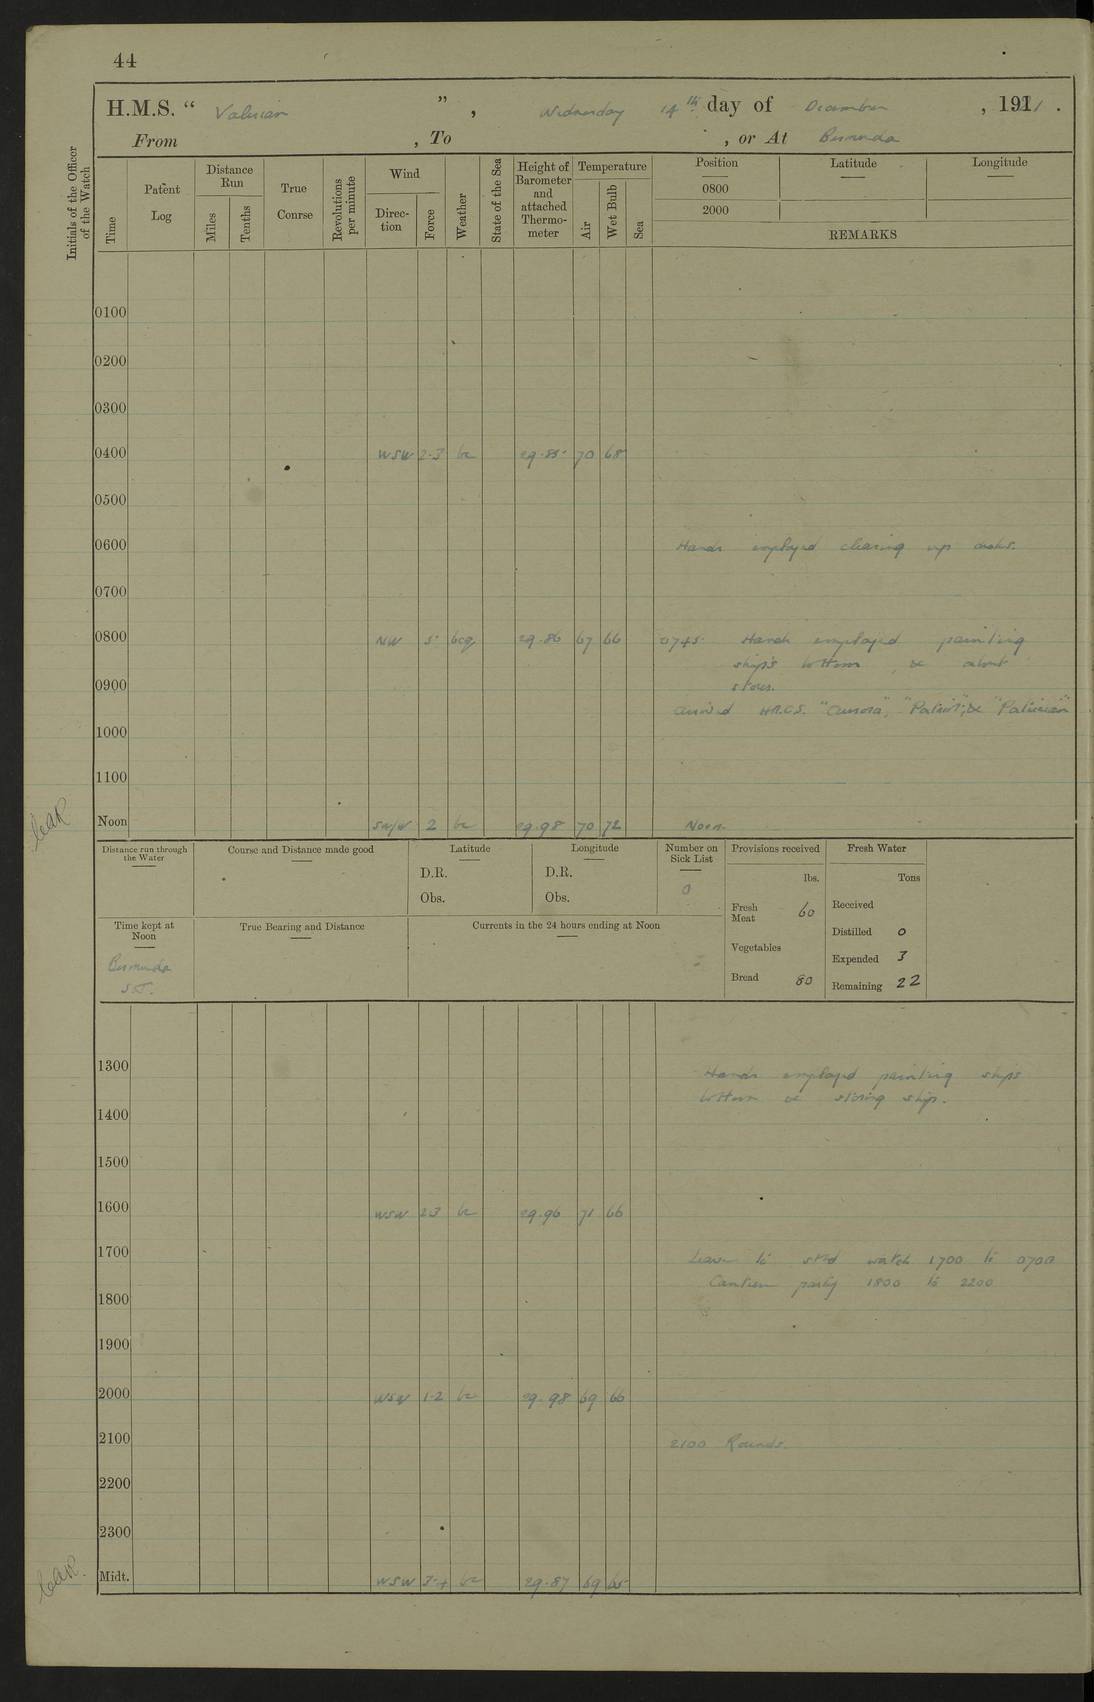 44
H.M.S. " Valerian ", Wednesday 14th day of December, 1921.
From , To , or At Bermuda
Initials of the Officer of the Watch
Time
Patent Log
Distance Run
Miles
Tenths
True Course
Revolutions per minute
Wind
Direction
Force
Weather
State of the Sea
Height of Barometer and attached Thermometer
Temperature
Air
Wet Bulb
Sea
Position
Latitude
Longitude
0800
2000
REMARKS
0100
0200
0300
0400 WSW 2-3 bc 29.85 70 68
0500
0600 Hands employed clearing up decks.
0700
0800 NW 5 bcq 29.86 67 66 0745 Hands employed painting
ship's bottom, & about
0900 stores.
arrived H.M.C.S. "Aurora", "Patriot", & "Patrician"
1000
1100
Noon 2 bc 29.98 70 72 Noon.
Distance run through the Water
Course and Distance made good
Latitude
D.R.
Obs.
Longitude
D.R.
Obs.
Number on Sick List
0
Provisions received
lbs.
Fresh Meat 60
Vegetables
Bread 80
Fresh Water
Tons
Received
Distilled 0
Expended 3
Remaining 22
Time kept at Noon
Bermuda
S.T.
True Bearing and Distance
Currents in the 24 hours ending at Noon
1300 Hands employed painting ships
bottom & storing ship.
1400
1500
1600 WSW 2-3 bc 29.96 71 66
1700 Leave to stbd watch 1700 to 0700
Canteen party 1800 to 2200
1800
1900
2000 WSW 1-2 bc 29.98 69 66
2100 2100 Rounds.
2200
2300
Midt. WSW 3-4 bc 29.87 69 65